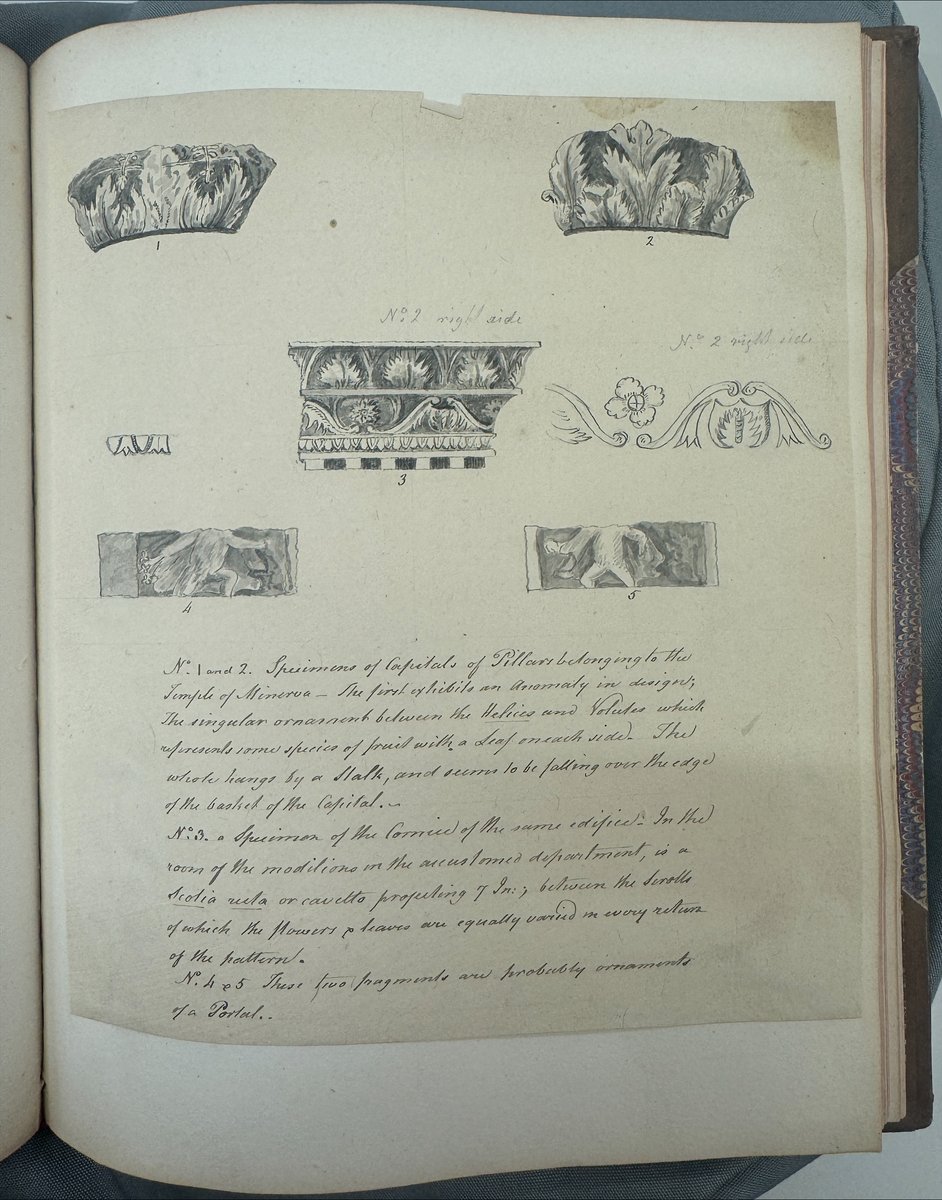 1
2
No. 2 right side
No. 2 right side
3
4
5
No. 1 and 2. Specimens of Capitals of Pillars belonging to the
Temple of Minerva — The first exhibits an Anomaly in design;
The singular ornament between the Helices and Volutes which
represents some species of fruit with a Leaf on each side. The
whole hangs by a Stalk, and seems to be falling over the edge
of the basket of the Capital. —
No. 3. a Specimen of the Cornice of the same edifice. In the
room of the modilions in the accustomed department, is a
Scotia recta or cavetto projecting 7 In:; between the Scrolls
of which the flowers & leaves are equally varied in every return
of the pattern.
N. 4 & 5 These two fragments are probably ornaments
of a Portal..